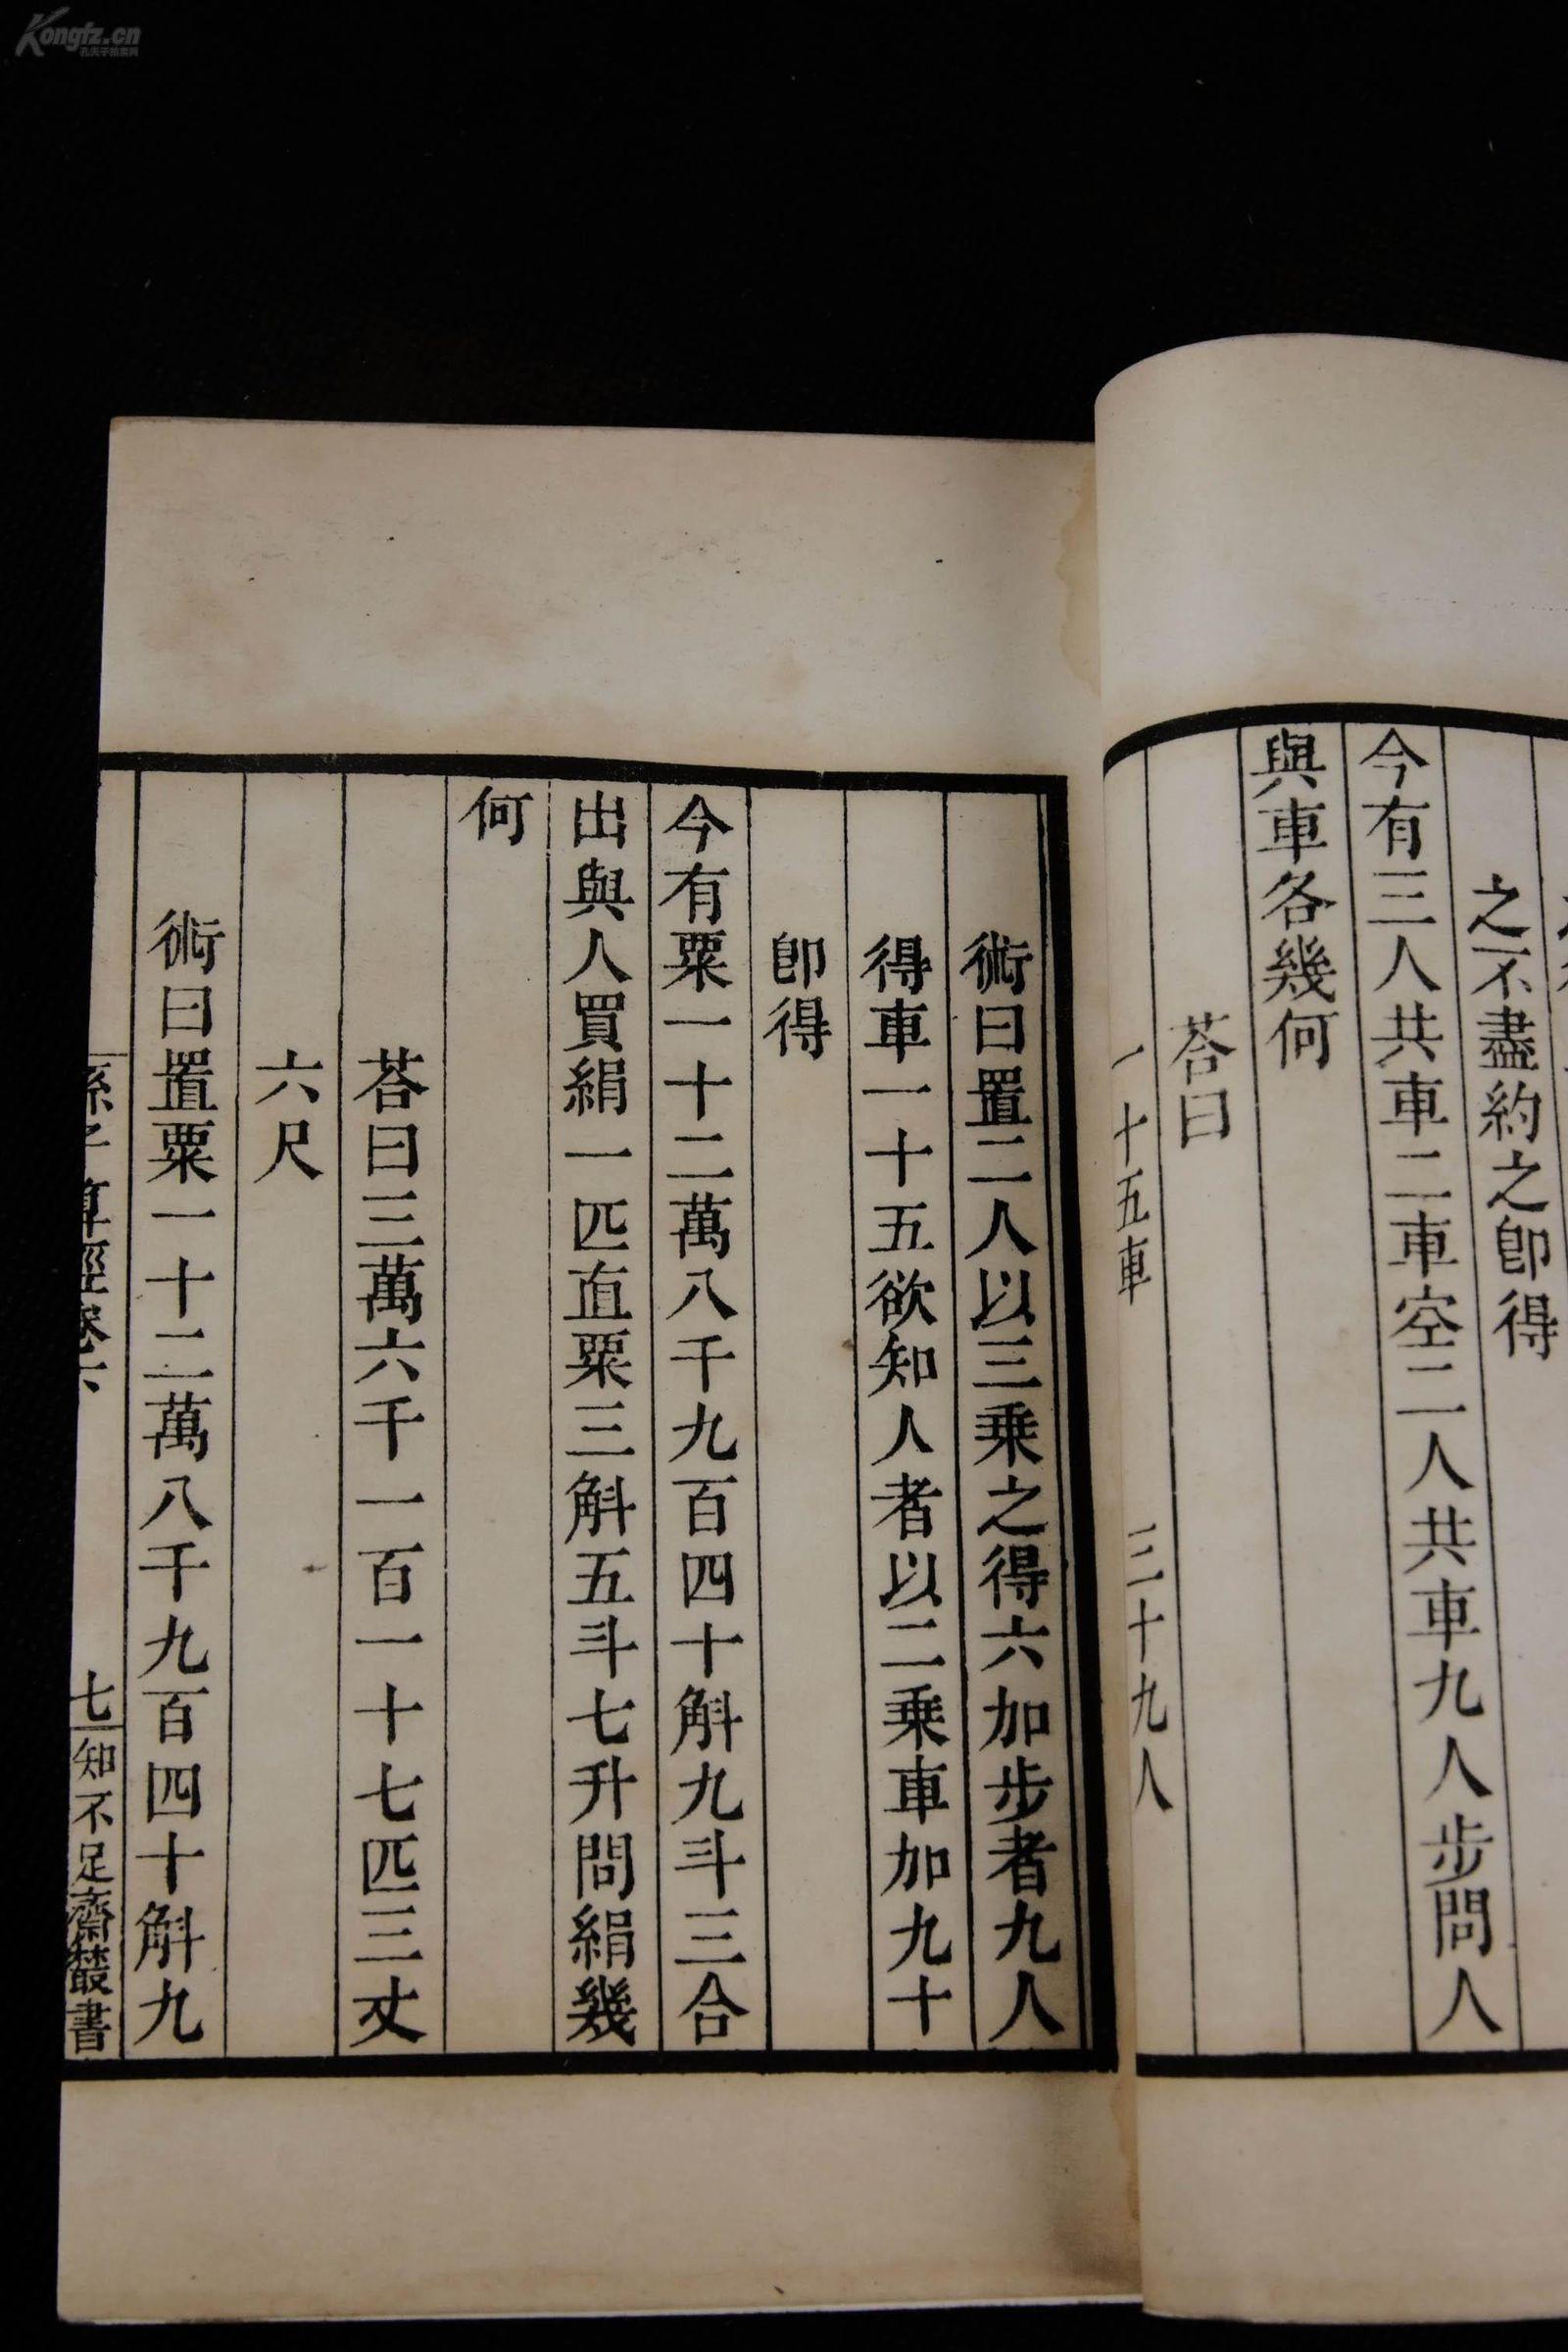 之不盡約之卽得
今有三人共車二車空二人共車九人步問人
與車各幾何
荅曰
一十五車　三十九人
術曰置二人以三乗之得六加步者九人
得車一十五欲知人者以二乗車加九十
卽得
今有粟一十二萬八千九百四十斛九斗三合
出與人買絹一匹直粟三斛五斗七升問絹幾
何
荅曰三萬六千一百一十七匹三丈
六尺
術曰置粟一十二萬八千九百四十斛九
孫子算經卷下
七
知不足齋叢書
Kongfz.cn